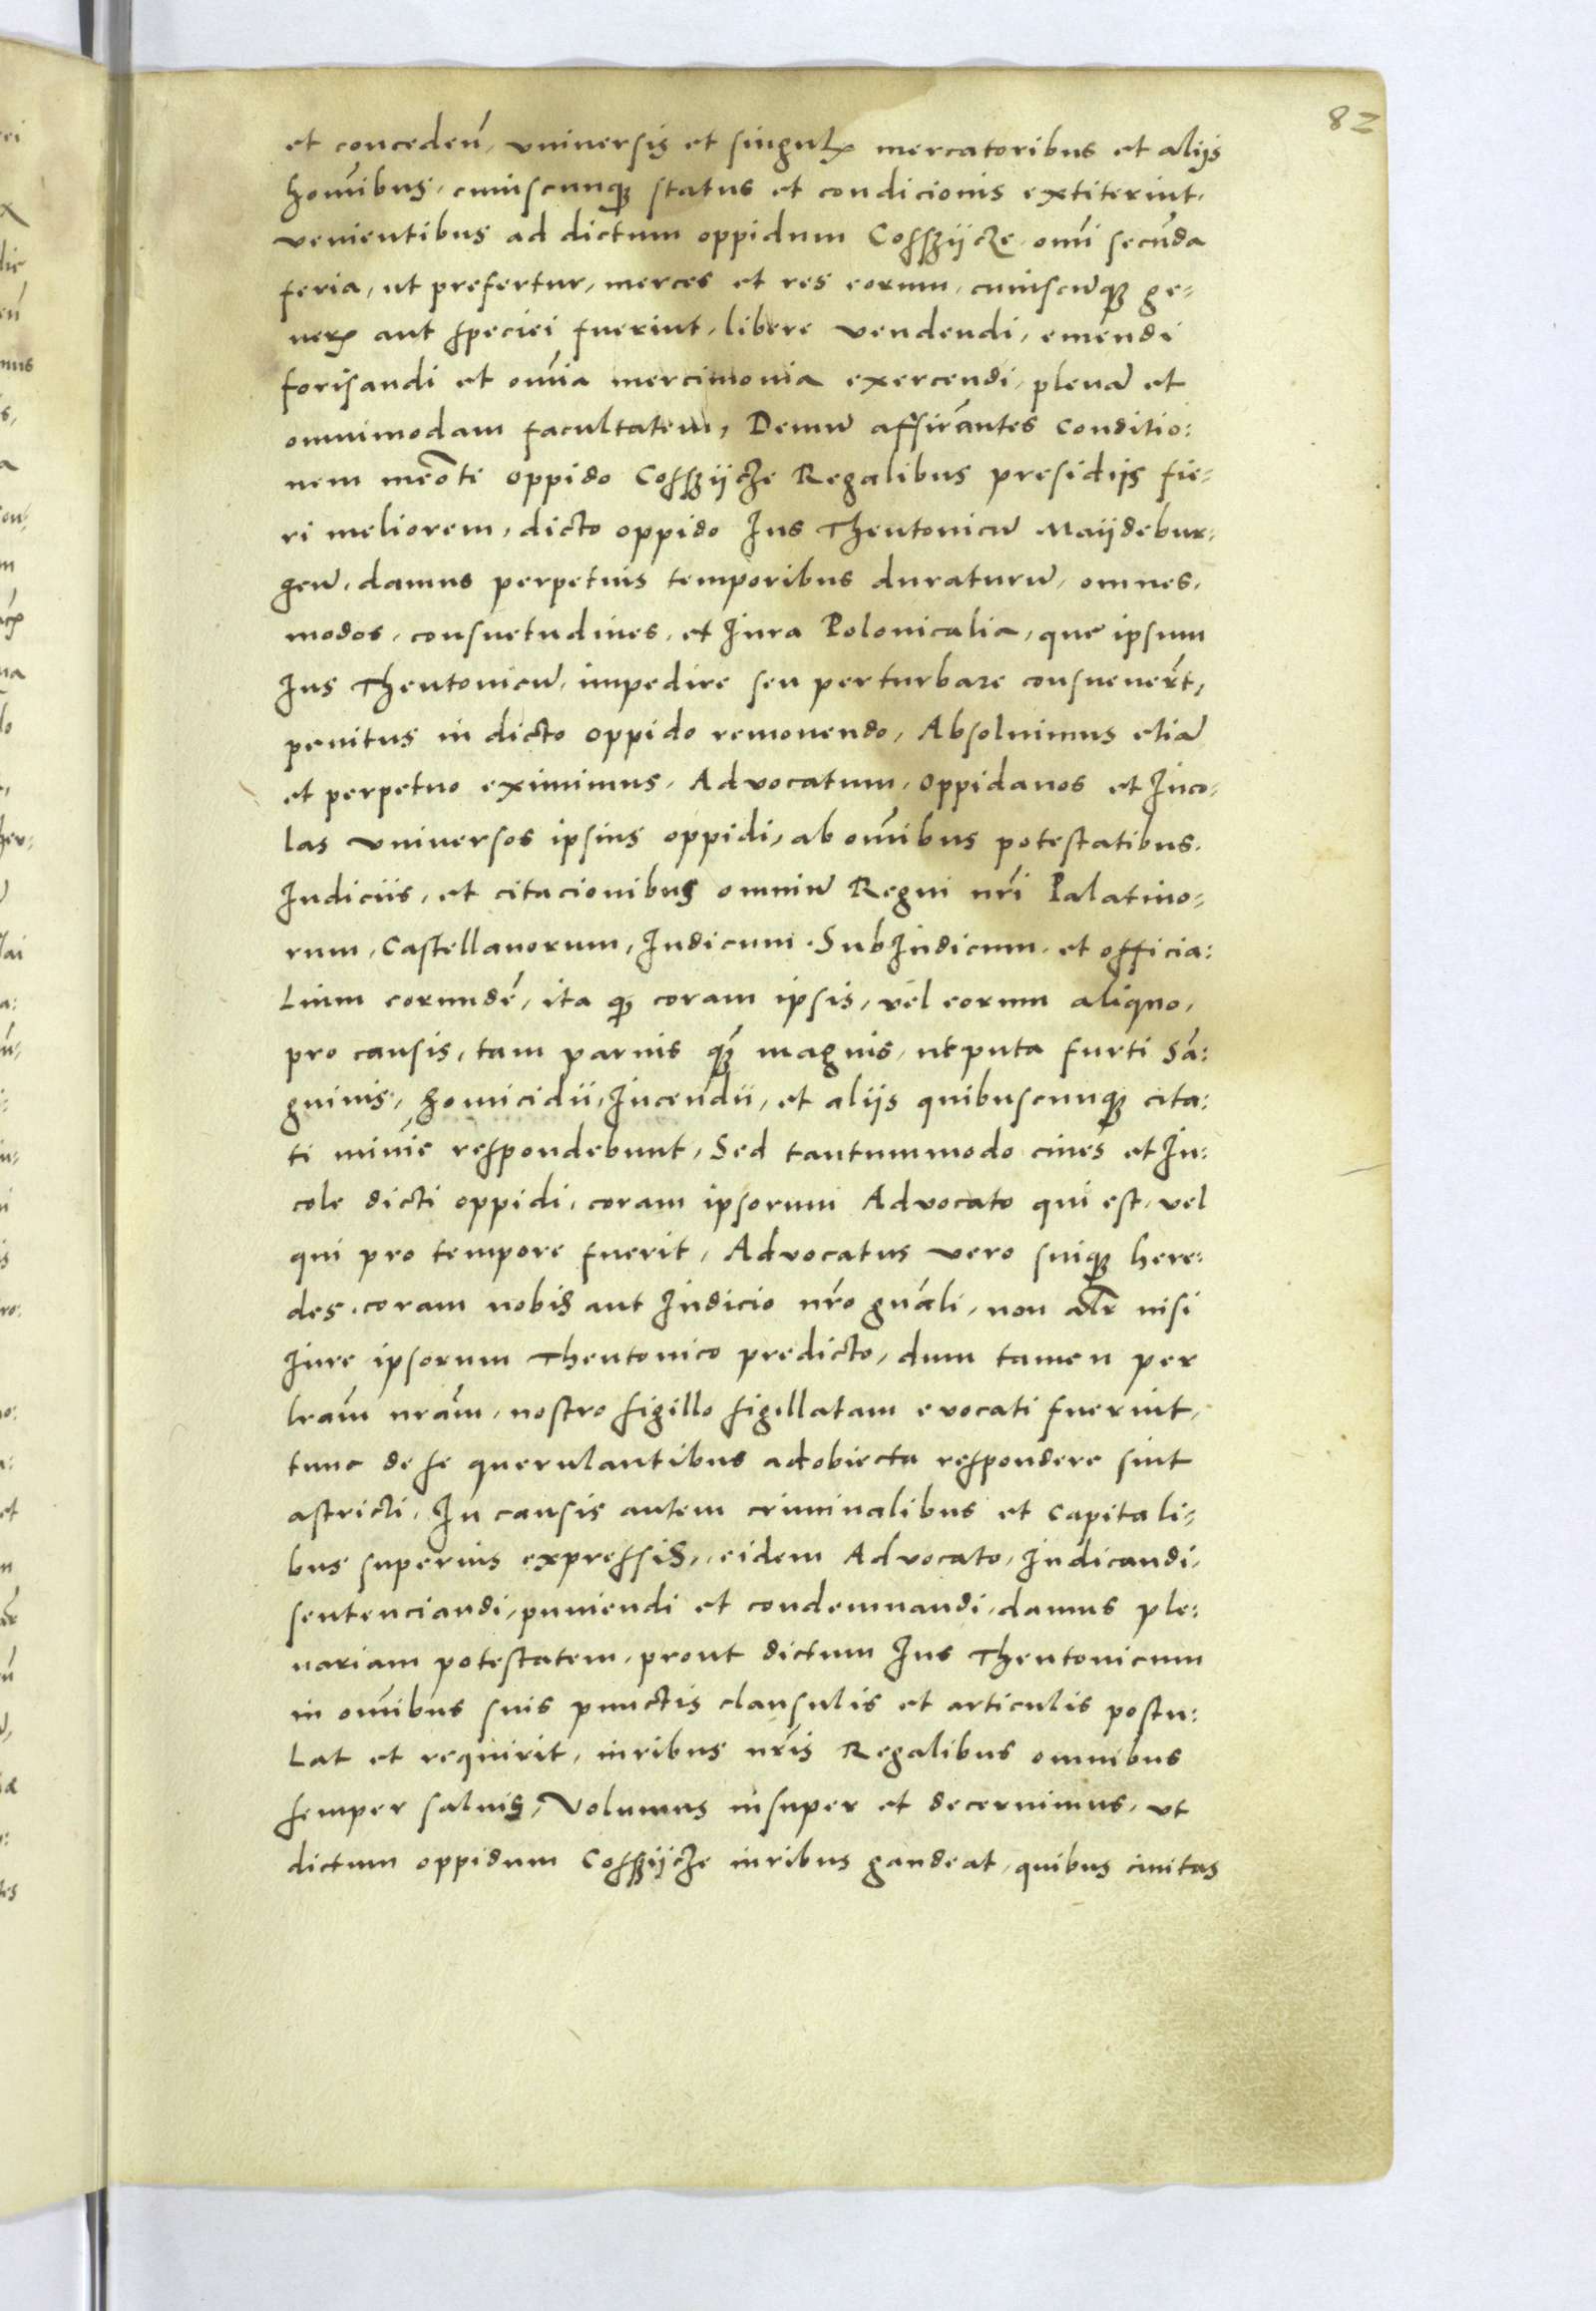 82
et conceden̄, vniversis et singulꝝ mercatoribus et alijs
homı̄bus, cuiuscunqꝫ status et condicionis extiterint,
venientibus ad dictum oppidum Cosszijcze omı̄ secūda
feria, ut prefertur, merces et res eorum, cuiuscūqꝫ ge-
nerꝭ aut speciei fuerint, libere vendendi, emendi
forisandi et omı̄a mercimonia exercendi, plenā et
omnimodam facultatem, Demū affir̄antes Conditio:
nem meōti oppido Cosszijcze Regalibus presidijs fie-
ri meliorem, dicto oppido Ius Theutonicū Maijdebur-
gen̄, damus perpetuis temporibus duraturū, omnes,
modos, consuetudines, et Iura Polonicalia, que ipsum
Ius Theutonicū, impedire seu perturbare consuever̄t,
penitus in dicto oppido remouendo, Absoluimus etiā
et perpetuo eximimus, Advocatum, oppidanos et Inco-
las vniversos ipsius oppidi, ab omı̄bus potestatibus,
Iudiciis, et citacionibus omniū Regni nr̄i Palatino-
rum, Castellanorum, Iudicum, SubIudicum, et officia:
Lium eorundē, ita qꝫ coram ipsis, vel eorum aliquo,
pro causis, tam parvis qꝫ̄ magnis, utputa furti Sā:
guinis, homicidii, Incendii, et aliis quibuscunqꝫ cita:
ti minı̄e respondebunt, Sed tantummodo ciues et In:
cole dicti oppidi, coram ipsorum Advocato qui est, vel
qui pro tempore fuerit, Advocatus vero suiqꝫ here:
des, coram nobis aut Iudicio nr̄o gn̄ali, non alr̄ nisi
Iure ipsorum Theutonico predicto, dum tamen per
lr̄am nr̄am, nostro sigillo sigillatam evocati fuerint,
tunc de se querulantibus ad obiecta respondere sint
astricti, In causis autem criminalibus et Capitali-
bus superius expressis, eidem Advocato, Iudicandi,
sentenciandi, puniendi et condemnandi, damus ple:
nariam potestatem, prout dictum Ius Theutonicum
in omı̄bus suis punctis clausulis et articulis postu:
Lat et requirit, iuribus nr̄is Regalibus omnibus
semper saluis, Volumus insuper et decernimus, vt
dictum oppidum Cosszijcze iuribus gaudeat, quibus ciuitas